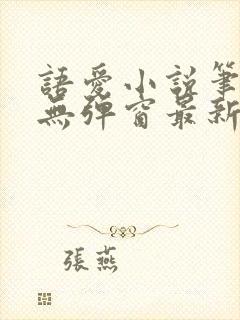 語愛小說筆
無彈窗最新
張燕